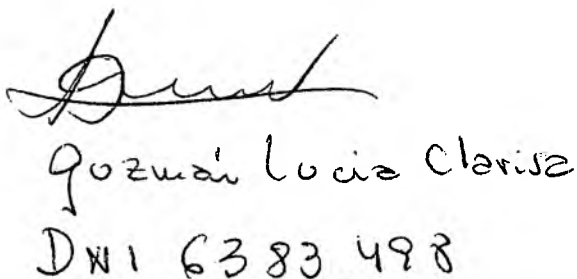 Guzmán Lucia Clarisa
DNI 6383498